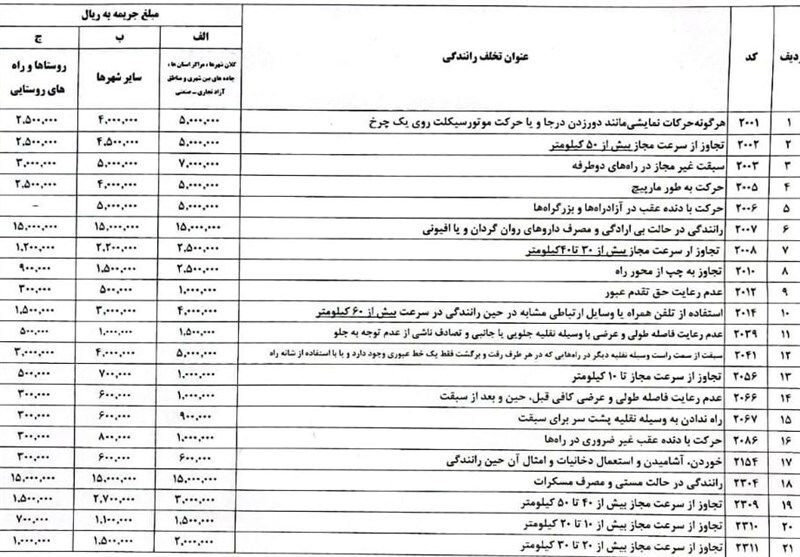 مبلغ جریمه به ریال
ردیف کد عنوان تخلف رانندگی الف ب ج
کلان شهرها ، مراکز استان ها ، جاده های بین شهری و مناطق آزاد تجاری – صنعتی سایر شهرها روستاها و راه های روستایی
۱ ۲۰۰۱ هرگونه حرکات نمایشی مانند دورزدن درجا و یا حرکت موتورسیکلت روی یک چرخ ۵,۰۰۰,۰۰۰ ۴,۰۰۰,۰۰۰ ۲,۵۰۰,۰۰۰
۲ ۲۰۰۲ تجاوز از سرعت مجاز بیش از ۵۰ کیلومتر ۵,۰۰۰,۰۰۰ ۴,۵۰۰,۰۰۰ ۲,۵۰۰,۰۰۰
۳ ۲۰۰۳ سبقت غیر مجاز در راه‌های دوطرفه ۷,۰۰۰,۰۰۰ ۵,۰۰۰,۰۰۰ ۳,۰۰۰,۰۰۰
۴ ۲۰۰۵ حرکت به طور مارپیچ ۵,۰۰۰,۰۰۰ ۴,۰۰۰,۰۰۰ ۲,۵۰۰,۰۰۰
۵ ۲۰۰۶ حرکت با دنده عقب در آزادراه‌ها و بزرگراه‌ها ۵,۰۰۰,۰۰۰ ۵,۰۰۰,۰۰۰ –
۶ ۲۰۰۷ رانندگی در حالت بی ارادگی و مصرف داروهای روان گردان و یا افیونی ۱۵,۰۰۰,۰۰۰ ۱۵,۰۰۰,۰۰۰ ۱۵,۰۰۰,۰۰۰
۷ ۲۰۰۸ تجاوز ار سرعت مجاز بیش از ۳۰ تا ۴۰کیلومتر ۲,۵۰۰,۰۰۰ ۲,۲۰۰,۰۰۰ ۱,۲۰۰,۰۰۰
۸ ۲۰۱۰ تجاوز به چپ از محور راه ۲,۵۰۰,۰۰۰ ۱,۵۰۰,۰۰۰ ۹۰۰,۰۰۰
۹ ۲۰۱۲ عدم رعایت حق تقدم عبور ۱,۰۰۰,۰۰۰ ۵۰۰,۰۰۰ ۳۰۰,۰۰۰
۱۰ ۲۰۱۴ استفاده از تلفن همراه یا وسایل ارتباطی مشابه در حین رانندگی در سرعت بیش از ۶۰ کیلومتر ۴,۰۰۰,۰۰۰ ۳,۰۰۰,۰۰۰ ۱,۵۰۰,۰۰۰
۱۱ ۲۰۳۹ عدم رعایت فاصله طولی و عرضی با وسیله نقلیه جلویی یا جانبی و تصادف ناشی از عدم توجه به جلو ۱,۵۰۰,۰۰۰ ۱,۰۰۰,۰۰۰ ۵۰۰,۰۰۰
۱۲ ۲۰۴۱ سبقت از سمت راست وسیله نقلیه دیگر در راه‌هایی که در هر طرف رفت و برگشت فقط یک خط عبوری وجود دارد و یا با استفاده از شانه راه ۵,۰۰۰,۰۰۰ ۴,۰۰۰,۰۰۰ ۳,۰۰۰,۰۰۰
۱۳ ۲۰۵۶ تجاوز از سرعت مجاز تا ۱۰ کیلومتر ۱,۰۰۰,۰۰۰ ۷۰۰,۰۰۰ ۵۰۰,۰۰۰
۱۴ ۲۰۶۶ عدم رعایت فاصله طولی و عرضی کافی قبل، حین و بعد از سبقت ۱,۰۰۰,۰۰۰ ۶۰۰,۰۰۰ ۳۰۰,۰۰۰
۱۵ ۲۰۶۷ راه ندادن به وسیله نقلیه پشت سر برای سبقت ۹۰۰,۰۰۰ ۶۰۰,۰۰۰ ۳۰۰,۰۰۰
۱۶ ۲۰۸۶ حرکت با دنده عقب غیر ضروری در راه‌ها ۱,۰۰۰,۰۰۰ ۸۰۰,۰۰۰ ۳۰۰,۰۰۰
۱۷ ۲۱۵۴ خوردن، آشامیدن و استعمال دخانیات و امثال آن حین رانندگی ۶۰۰,۰۰۰ ۶۰۰,۰۰۰ ۳۰۰,۰۰۰
۱۸ ۲۳۰۴ رانندگی در حالت مستی و مصرف مسکرات ۱۵,۰۰۰,۰۰۰ ۱۵,۰۰۰,۰۰۰ ۱۵,۰۰۰,۰۰۰
۱۹ ۲۳۰۹ تجاوز از سرعت مجاز بیش از ۴۰ تا ۵۰ کیلومتر ۳,۰۰۰,۰۰۰ ۲,۷۰۰,۰۰۰ ۱,۵۰۰,۰۰۰
۲۰ ۲۳۱۰ تجاوز از سرعت مجاز بیش از ۱۰ تا ۲۰ کیلومتر ۱,۵۰۰,۰۰۰ ۱,۱۰۰,۰۰۰ ۷۰۰,۰۰۰
۲۱ ۲۳۱۱ تجاوز از سرعت مجاز بیش از ۲۰ تا ۳۰ کیلومتر ۲,۰۰۰,۰۰۰ ۱,۵۰۰,۰۰۰ ۱,۰۰۰,۰۰۰